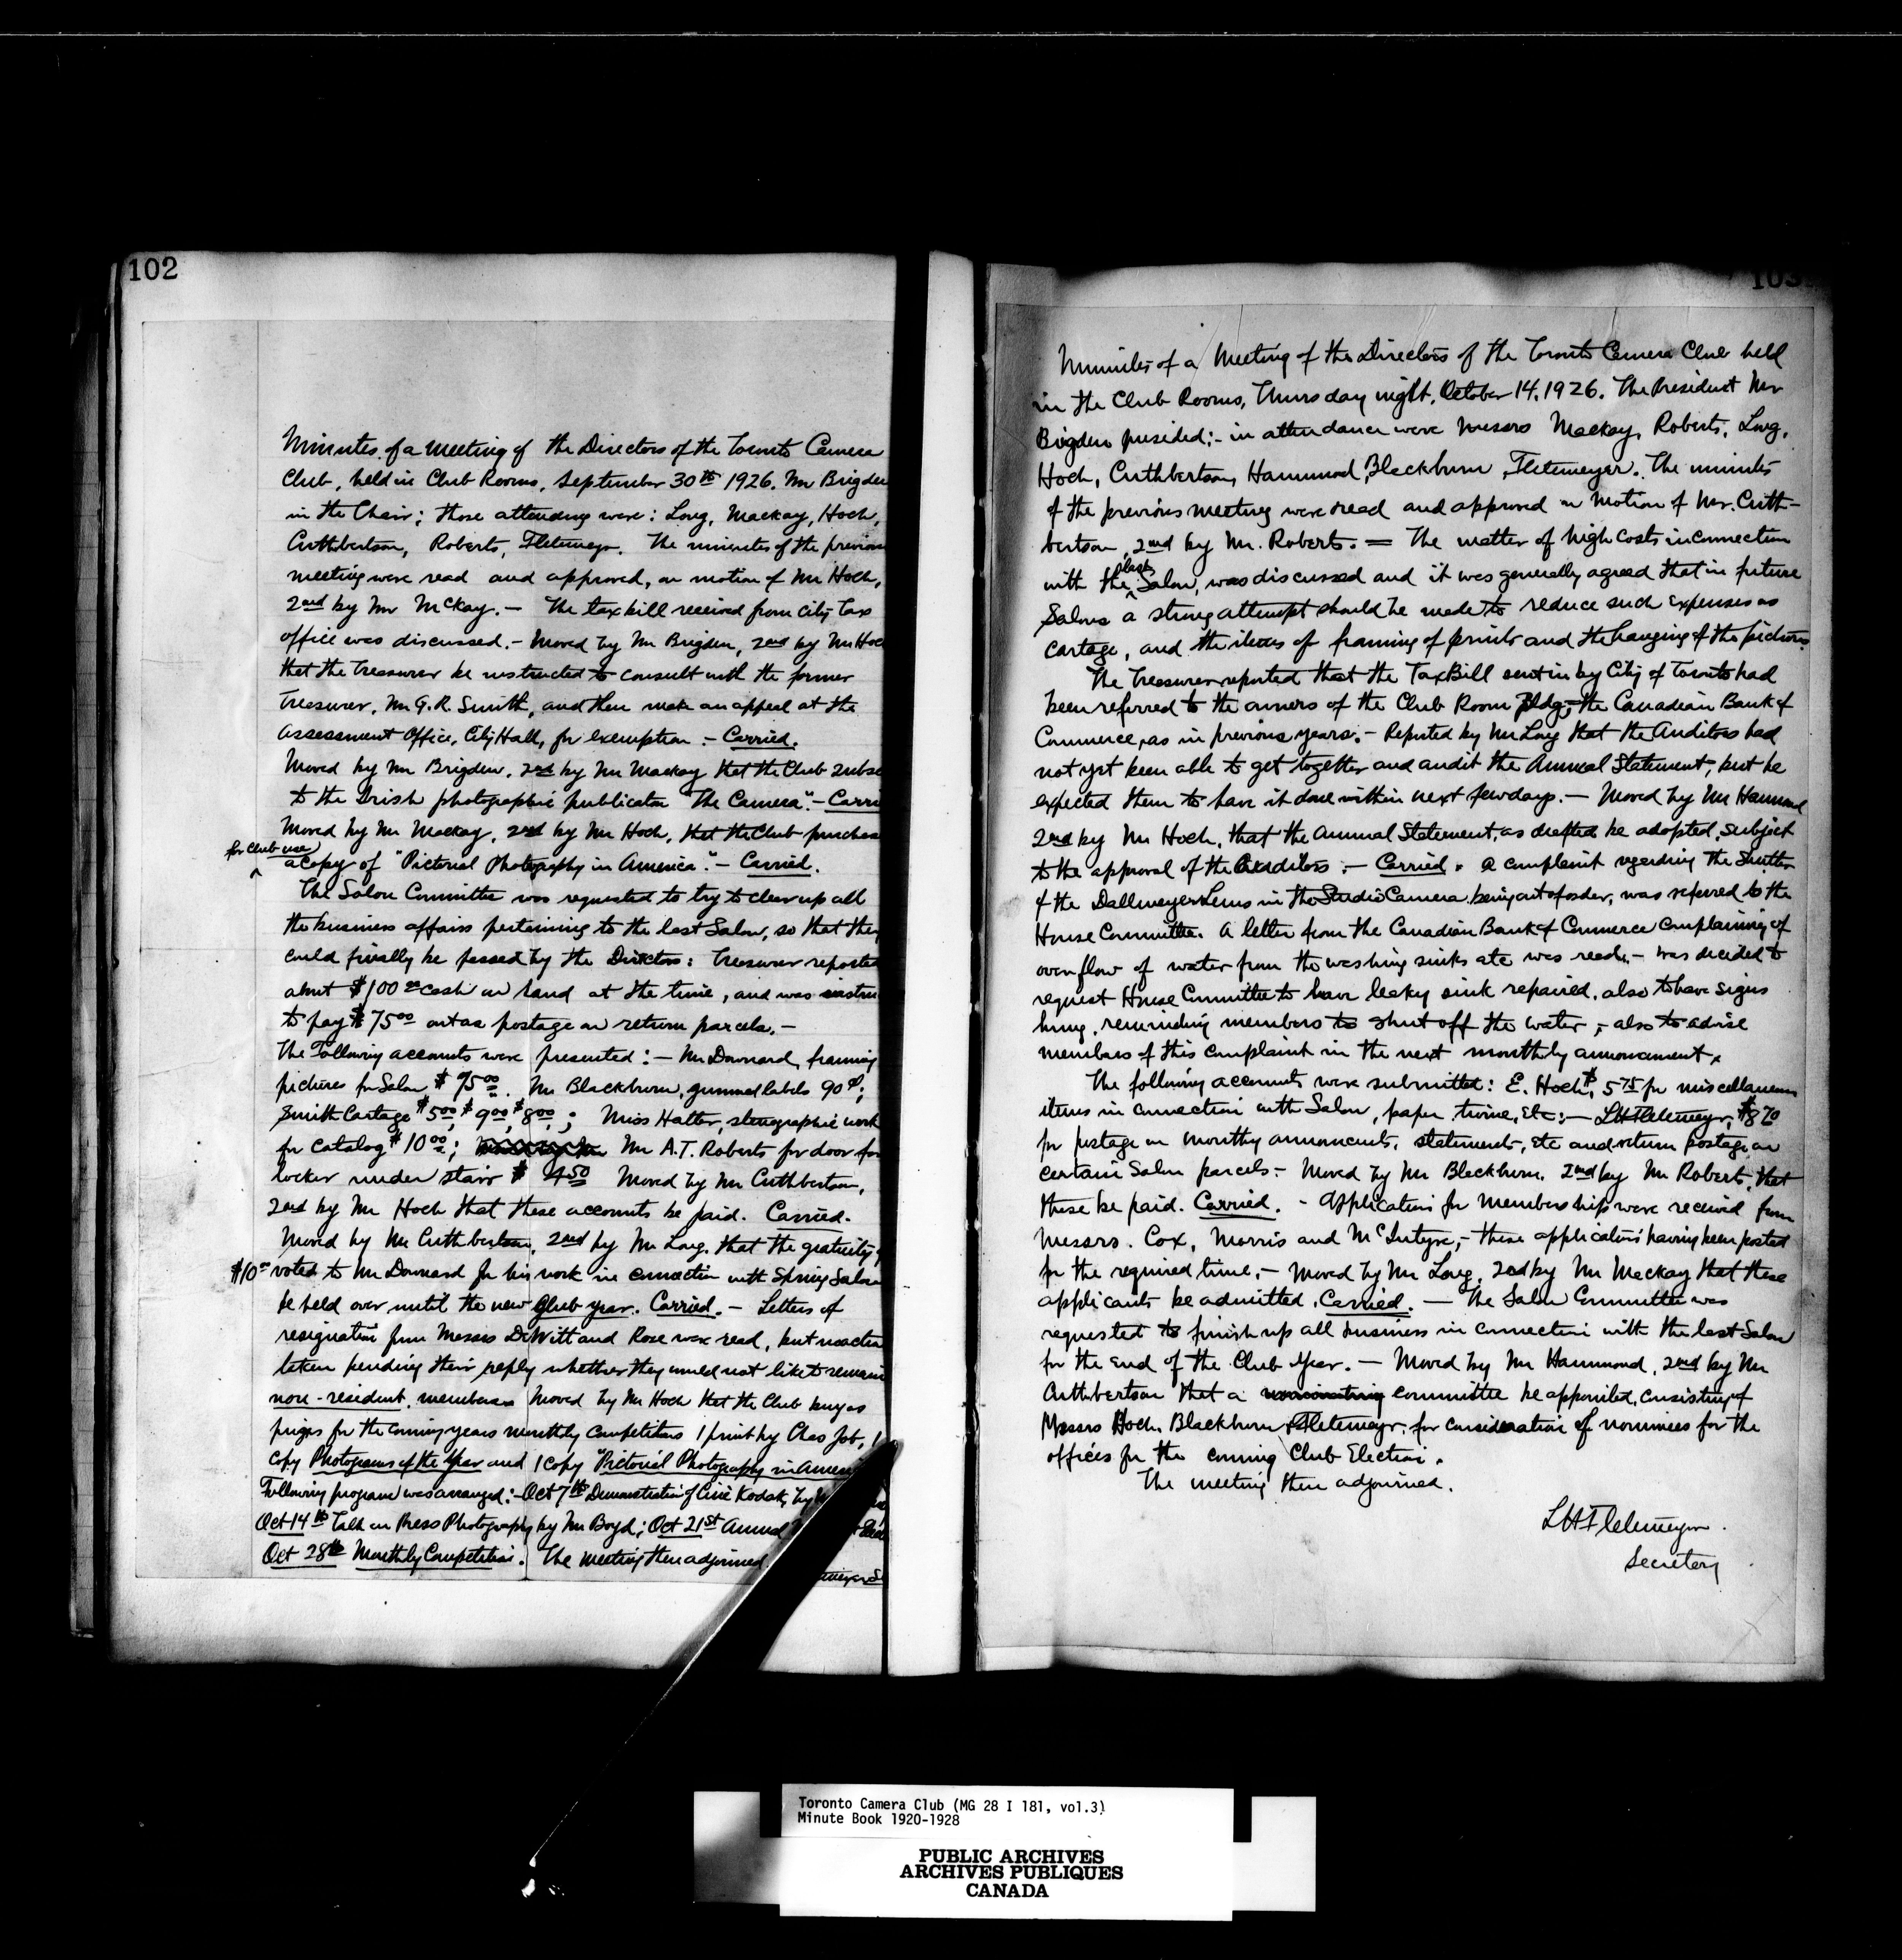 102
Minutes of a meeting of the Directors of the Toronto Camera
Club, held in Club Rooms, September 30th 1926. Mr Brigden
in the Chair; those attending were: Long, Mackay, Hoch,
Cuthbertson, Roberts, Fletemeyer. The minutes of the previous
meeting were read and approved, on motion of Mr Hoch,
2nd by Mr McKay. — The tax bill received from City Tax
office was discussed. — Moved by Mr Brigden, 2nd by Mr Hoch
that the Treasurer be instructed to consult with the former
Treasurer, Mr G. R. Smith, and then make an appeal at the
Assessment Office, City Hall, for exemption. — Carried.
Moved by Mr Brigden, 2nd by Mr Mackay that the Club subs
to the Irish photographic publication "The Camera". — Carri
Moved by Mr Mackay, 2nd by Mr Hoch, that the Club purchase
for Club use
a copy of "Pictorial Photography in America." — Carried.
The Salon Committee was requested to try to clear up all
the business affairs pertaining to the last Salon, so that they
could finally be passed by the Directors: Treasurer reported
about $100 00 cash on hand at the time, and was instru
to pay $75 00 out as postage on return parcels. —
The Following accounts were presented: — Mr Downard, framing
pictures for Salon $75 00. Mr Blackburn, gummed labels 90¢;
Smith Cartage $5 00, $9 00, $8 00; Miss Halter, stenographic work
for Catalog $10 00; Mr A.T. Roberts for door for
locker under stairs $4 50 Moved by Mr Cuthbertson,
2nd by Mr Hoch that these accounts be paid. Carried.
Moved by Mr Cuthbertson, 2nd by Mr Long, that the gratuity of
$10 00 voted to Mr Downard for his work in connection with Spring Salon
be held over until the new Club year. Carried. — Letters of
resignation from Messrs DeWitt and Rose were read, but no action
taken pending their reply whether they would not like to remain
non-resident members. Moved by Mr Hoch that the Club buy as
prizes for the coming years monthly competitions 1 print by Chas Job, 1
copy Photograms of the Year and 1 copy "Pictorial Photography in Ameri
Following program was arranged: — Oct 7th Demonstration of Ciné Kodak, by
Oct 14th Talk on Press Photography by Mr Boyd; Oct 21st Annual
Oct 28th Monthly Competition. The meeting then adjourned.
103
Minutes of a Meeting of the Directors of the Toronto Camera Club held
in the Club Rooms, Thursday night, October 14, 1926. The President Mr
Brigden presided; — in attendance were Messrs Mackay, Roberts, Long,
Hoch, Cuthbertson, Hammond, Blackburn, Fletemeyer. The minutes
of the previous meeting were read and approved on motion of Mr. Cuth-
bertson, 2nd by Mr. Roberts. = The matter of high costs in connection
with the last Salon, was discussed and it was generally agreed that in future
Salons a strong attempt should be made to reduce such expenses as
cartage, and the items of framing of prints and the hanging of the pictures.
The Treasurer reported that the Tax Bill sent in by City of Toronto had
been referred to the owners of the Club Room Bldg, — the Canadian Bank of
Commerce, as in previous years. — Reported by Mr Long that the Auditors had
not yet been able to get together and audit the Annual Statement, but he
expected them to have it done within next few days. — Moved by Mr Hammond
2nd by Mr Hoch, that the Annual Statement, as drafted be adopted, subject
to the approval of the Auditors. — Carried. A complaint regarding the Shutter
of the Dallmeyer Lens in the Studio Camera being out of order, was referred to the
House Committee. A letter from the Canadian Bank of Commerce complaining of
overflow of water from the washing sinks etc was read, — was decided to
request House Committee to have leaky sink repaired, also to have signs
hung, reminding members to shut off the water, — also to advise
members of this complaint in the next monthly announcement.
The following accounts were submitted: E. Hoch $5 75 for miscellaneous
items in connection with Salon, paper, twine, etc: — LH Fletemeyer, $8 70
for postage on monthly announcements, statements, etc and return postage on
certain Salon parcels — Moved by Mr Blackburn, 2nd by Mr Roberts, that
these be paid. Carried. — Applications for memberships were received from
Messrs. Cox, Morris and McIntyre, — these applications having been posted
for the required time, — Moved by Mr Long, 2nd by Mr Mackay that these
applicants be admitted. Carried. — The Salon Committee was
requested to finish up all business in connection with the last Salon
for the end of the Club Year. — Moved by Mr Hammond, 2nd by Mr
Cuthbertson that a nominating committee be appointed, consisting of
Messrs Hoch, Blackburn, Fletemeyer, for consideration of nominees for the
offices for the coming Club Election.
The meeting then adjourned.
LH Fletemeyer.
Secretary
Toronto Camera Club (MG 28 I 181, vol.3)
Minute Book 1920-1928
PUBLIC ARCHIVES
ARCHIVES PUBLIQUES
CANADA